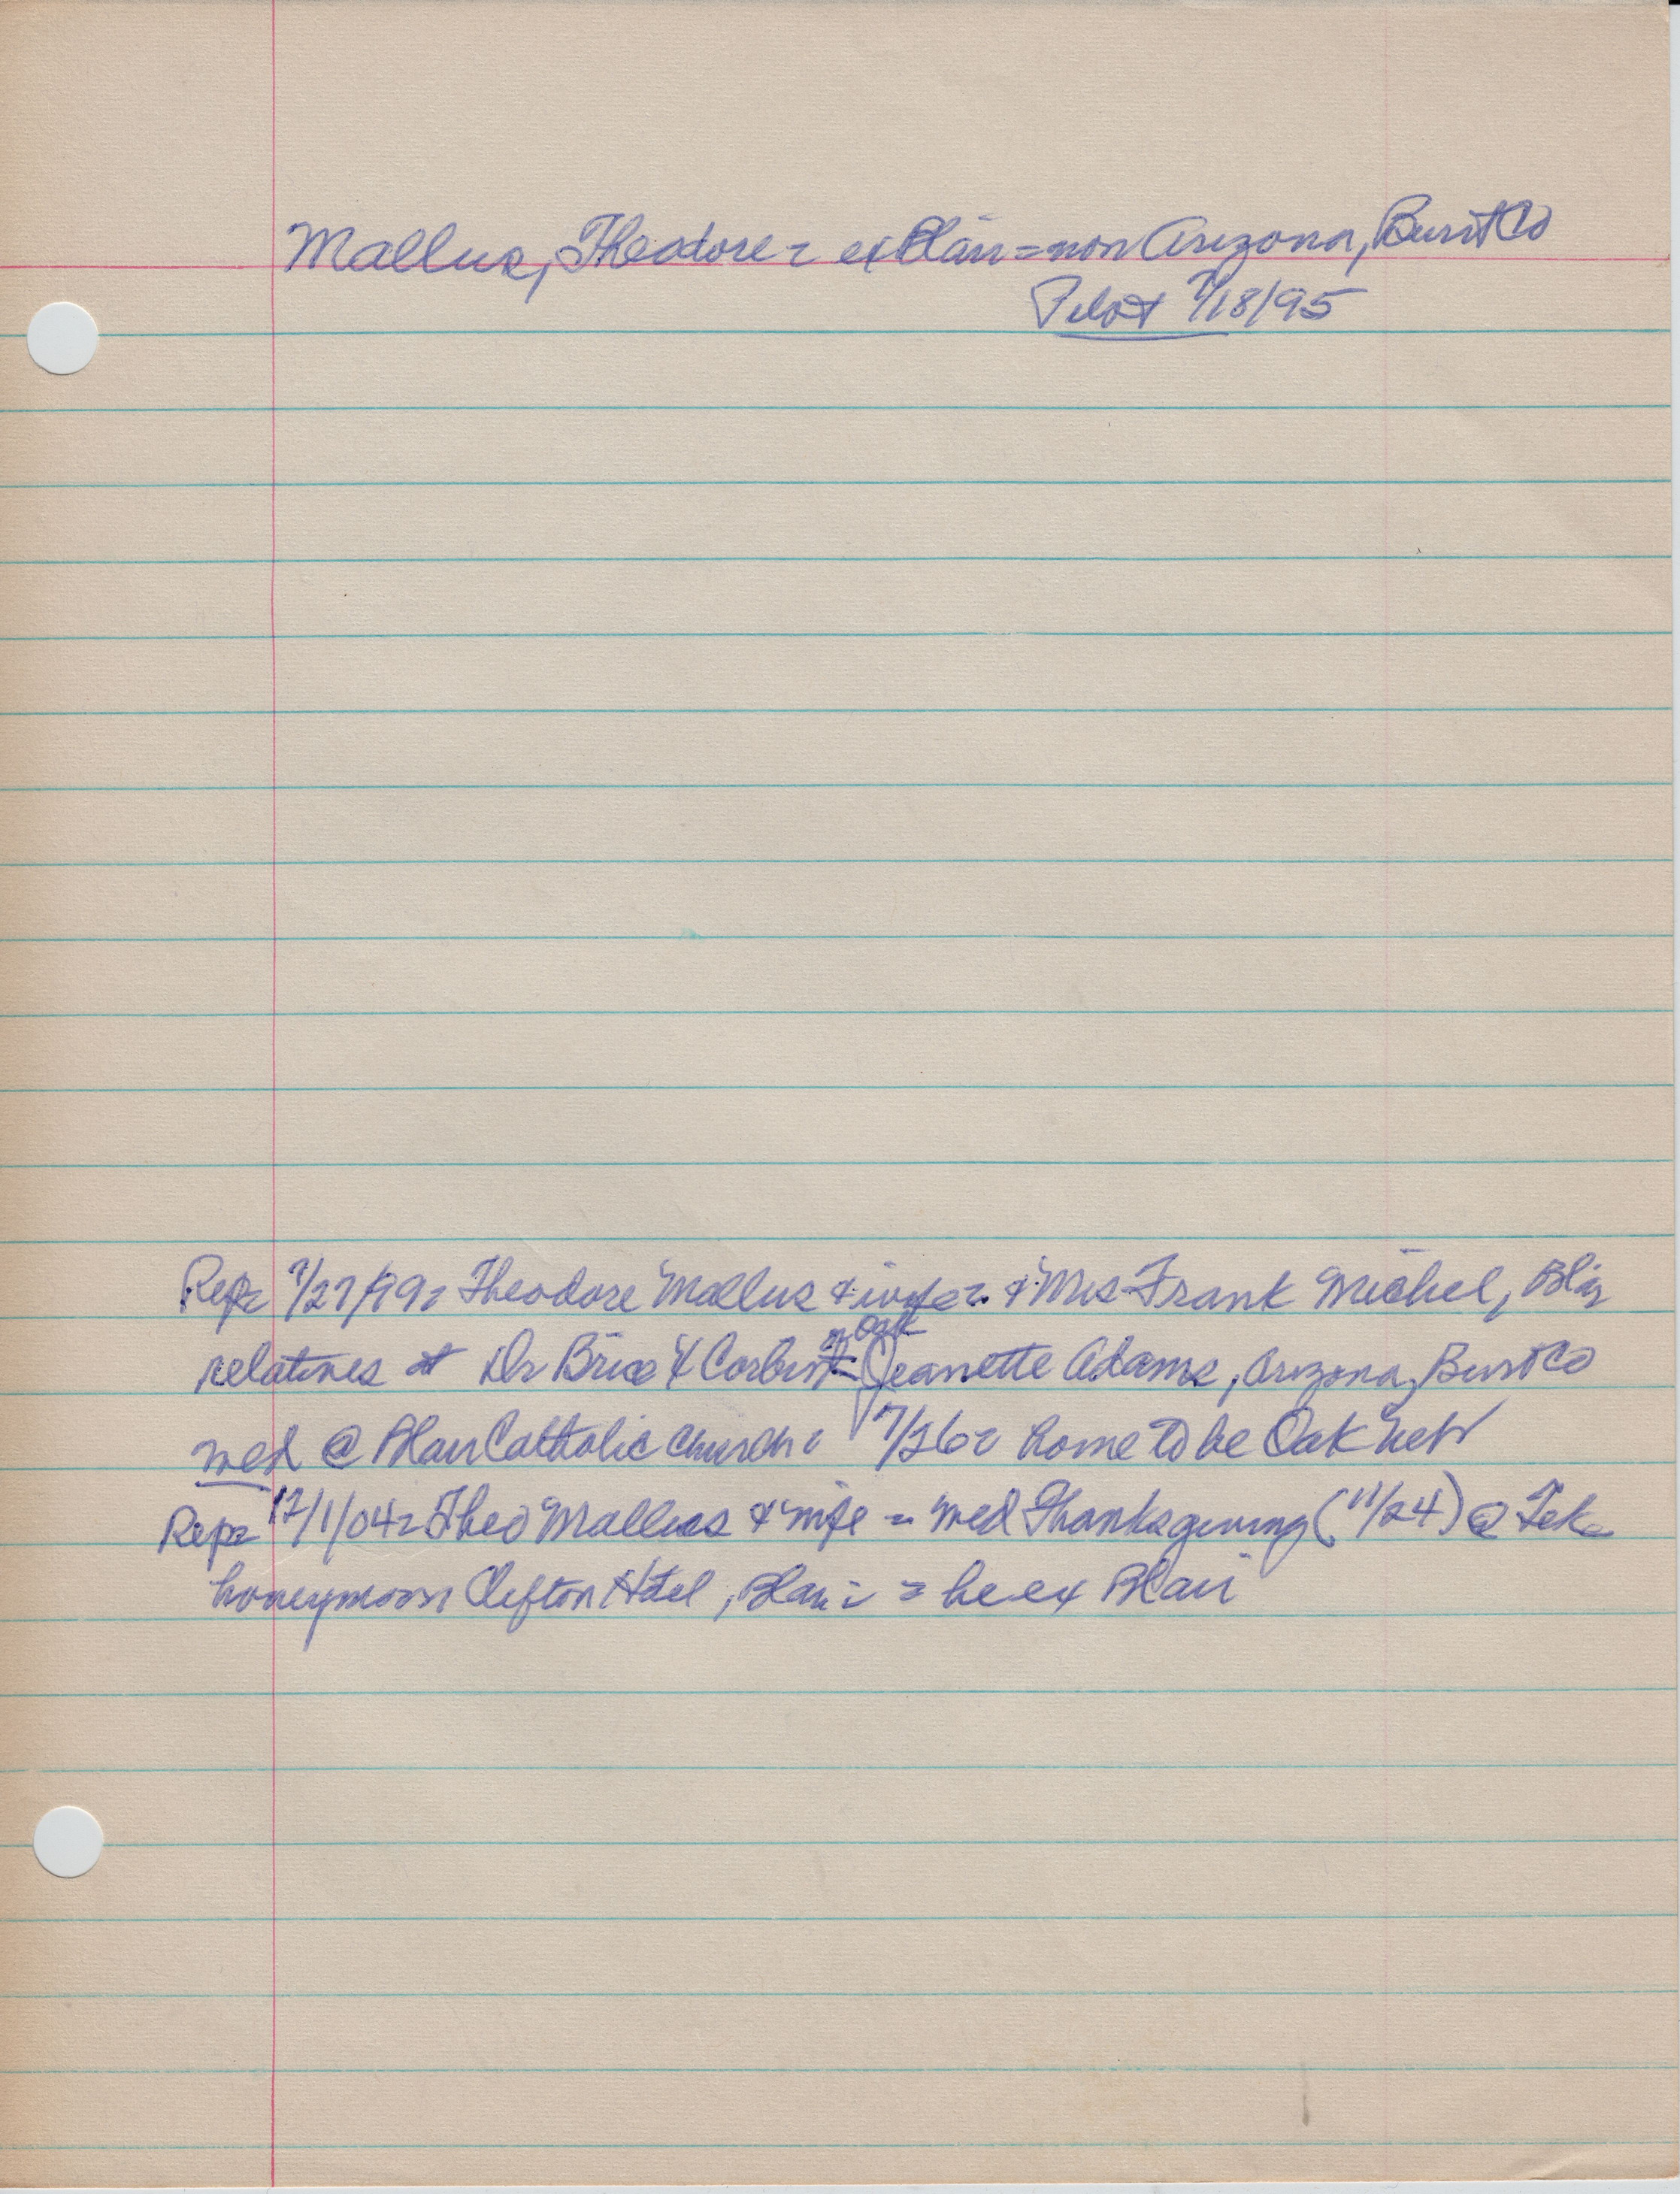 Mallus, Theodore = ex Blair = now Arizona, Burt Co
Pilot 7/18/95
Rep = 7/27/99 = Theodore Mallus & wife = & Mrs Frank Michel, Blair
Oak
relatives at Dr Brice & Jeanette Adams, Arizona, Burt Co
wed @ Blair Catholic Church = 7/26 = home to be Oak
Rep = 12/1/04 = Theo Mallus & wife = wed Thanksgiving (11/24) @ Tek =
honeymoon Clifton Hotel, Blair = = he ex Blair